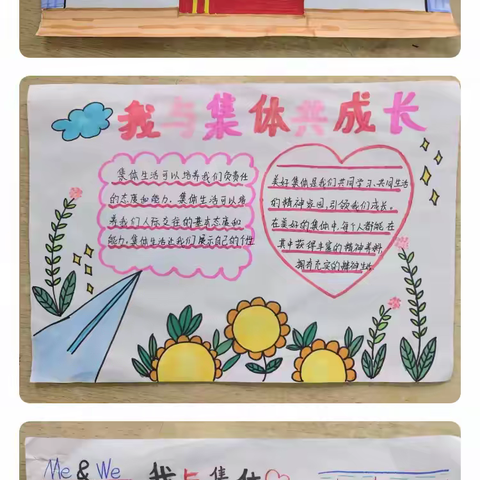 我与集体共成长
集体生活可以培养我们负责任
的态度和能力。集体生活可以培
养我们人际交往的基本态度和
能力。集体生活让我们展示自己的个性
美好集体是我们共同学习、共同生活
的精神家园，引领我们成长。
在美好的集体中，每个人都能在
其中获得丰富的精神养料，
拥有充实的精神生活
Me & We
我与集体